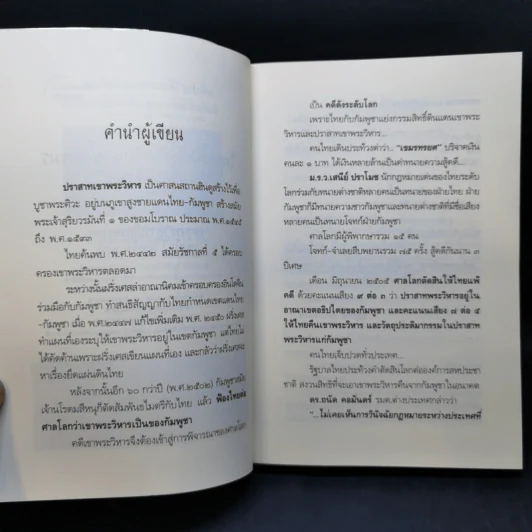 คำนำผู้เขียน
ปราสาทเขาพระวิหาร เป็นศาสนสถานฮินดูสร้างไว้เพื่อ
บูชาพระศิวะ อยู่บนภูเขาสูงชายแดนไทย-กัมพูชา สร้างสมัย
พระเจ้าสุริยวรมันที่ ๑ ของขอมโบราณ ประมาณ พ.ศ.๑๕๔๕
ถึง พ.ศ.๑๕๙๓
ไทยค้นพบ พ.ศ.๒๔๔๒ สมัยรัชกาลที่ ๕ ได้ครอบ
ครองเขาพระวิหารตลอดมา
ระหว่างนั้นฝรั่งเศสล่าอาณานิคมเข้าครอบครองอินโดจีน
ร่วมมือกับกัมพูชา ทำสนธิสัญญากับไทยกำหนดเขตแดนไทย
-กัมพูชา เมื่อ พ.ศ.๒๔๔๗ แก้ไขเพิ่มเติม พ.ศ.๒๔๕๐ ฝรั่งเศส
ทำแผนที่เองระบุให้เขาพระวิหารอยู่ในเขตกัมพูชา แต่ไทยไม่
ได้คัดค้านเพราะฝรั่งเศสเขียนแผนที่เอง และกลัวว่าฝรั่งเศสจะ
หาเรื่องยึดแผ่นดินไทย
หลังจากนั้นอีก ๖๐ กว่าปี (พ.ศ.๒๕๐๒) กัมพูชาสมัย
เจ้านโรดมสีหนุก็ตัดสัมพันธไมตรีกับไทย แล้ว ฟ้องไทยต่อ
ศาลโลกว่าเขาพระวิหารเป็นของกัมพูชา
คดีเขาพระวิหารจึงต้องเข้าสู่การพิจารณาของศาลโลก
เป็น คดีดังระดับโลก
เพราะไทยกับกัมพูชาแย่งกรรมสิทธิ์ดินแดนเขาพระ
วิหารและปราสาทเขาพระวิหาร...
คนไทยเดินประท้วงด่าว่า.. "เขมรทรยศ" บริจาคเงิน
คนละ ๑ บาท ได้เงินหลายล้านเป็นค่าทนายความสู้คดี...
ม.ร.ว.เสนีย์ ปราโมช นักกฎหมายเด่นของไทยระดับ
โลกร่วมกับทนายต่างชาติหลายคนเป็นทนายของฝ่ายไทย ฝ่าย
กัมพูชาก็มีทนายความชาวกัมพูชาและทนายต่างชาติที่มีชื่อเสียง
หลายคนเป็นทนายโจทก์ฝ่ายกัมพูชา
ศาลโลกมีผู้พิพากษารวม ๑๕ คน
โจทก์-จำเลยสืบพยานรวม ๗๕ ครั้ง สู้คดีกันนาน ๓
ปีเศษ
เดือน มิถุนายน ๒๕๐๕ ศาลโลกตัดสินให้ไทยแพ้
คดี ด้วยคะแนนเสียง ๙ ต่อ ๓ ว่า ปราสาทพระวิหารอยู่ใน
อาณาเขตอธิปไตยของกัมพูชา และคะแนนเสียง ๗ ต่อ ๕
ให้ไทยคืนเขาพระวิหาร และวัตถุประติมากรรมในปราสาท
พระวิหารแก่กัมพูชา
คนไทยเจ็บปวดทั่วประเทศ...
รัฐบาลไทยประท้วงคำตัดสินโลกต่อองค์การสหประชา
ชาติ สงวนสิทธิที่จะเอาเขาพระวิหารคืนจากกัมพูชาในอนาคต
ดร.ถนัด คอมันตร์ รมต.ต่างประเทศกล่าวว่า
"...ไม่เคยเห็นการวินิจฉัยกฎหมายระหว่างประเทศที่